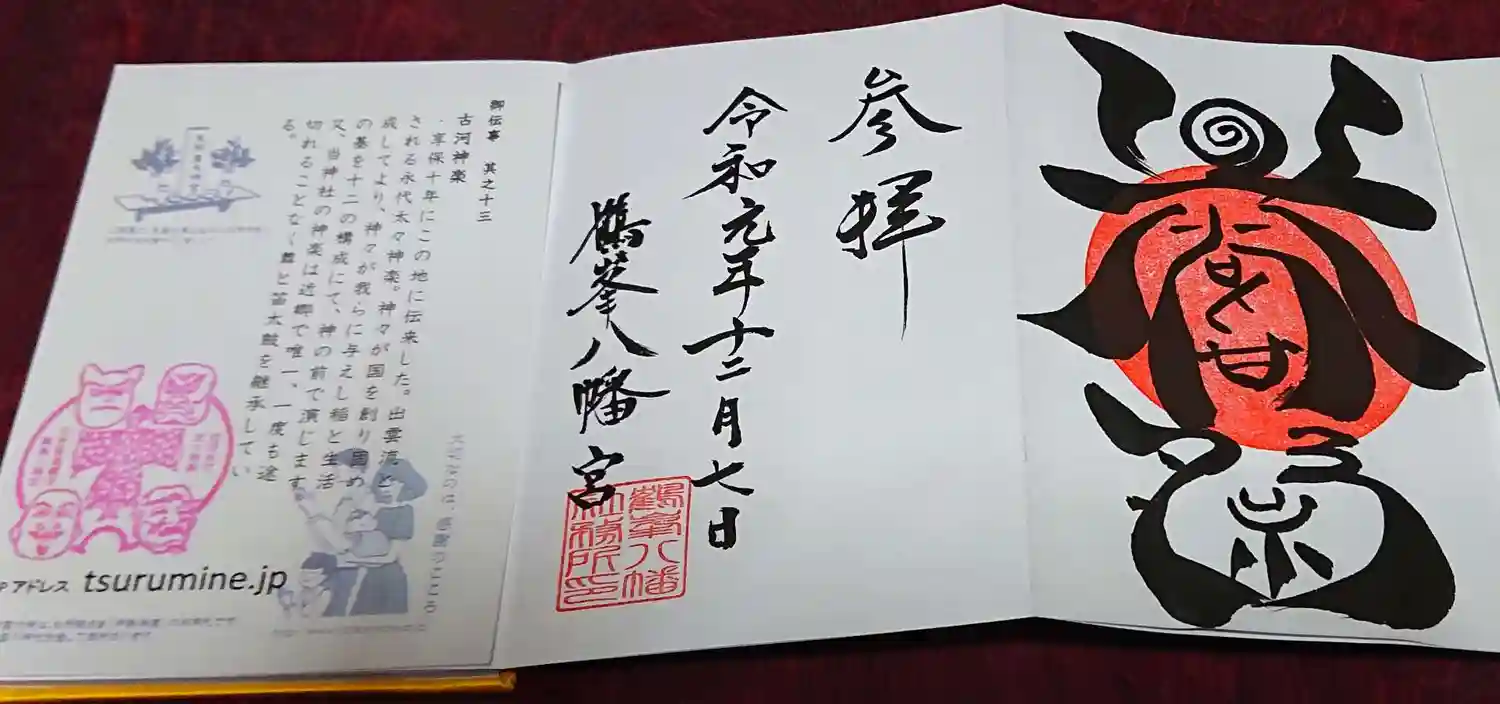 参拝
令和元年十二月七日
鶴峯八幡宮
鶴峯八幡
社務所印
御伝事 其之十三
古河神楽
・享保十年にこの地に伝来した。出雲流と
される永代太々神楽。神々が国を創り固め
成してより、神々が我らに与えし稲と生活
の基を十二の構成にて、神の前で演じます。
又、当神社の神楽は近郷で唯一、一度も途
切れることなく舞と笛太鼓を継承してい
る。
アドレス tsurumine.jp
大切なのは、感謝のこころ